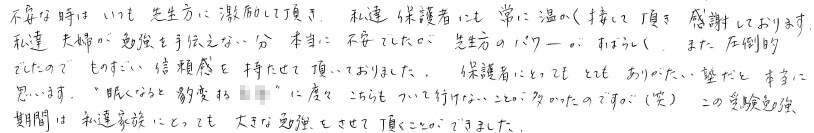 不安な時は いつも 先生方に 激励して頂き、私達 保護者にも 常に温かく接して頂き 感謝しております。
私達 夫婦が 勉強を手伝えない分 本当に 不安でしたが 先生方の パワーが すばらしく、また 圧倒的
でしたので ものすごい 信頼感を 持たせて 頂いておりました。 保護者にとっても とても ありがたい 塾だと 本当に
思います。“眠くなると 豹変する ”に度々 こちらも ついて行けないことが多かったのですが(笑) この受験勉強
期間は 私達家族にとっても 大きな勉強を させて 頂くことができました。